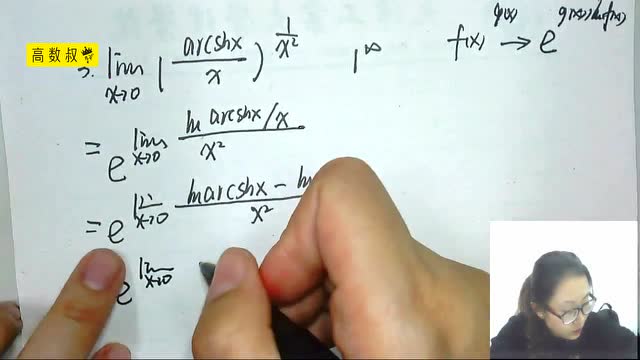 高数叔
3. lim x→0 (arcshx/x)^(1/x²) 1^∞ f(x)^g(x) → e^(g(x)lnf(x))
= e^(lim x→0 ln arcshx/x / x²)
= e^(lim x→0 lnarcshx - ln / x²)
e^(lim x→0